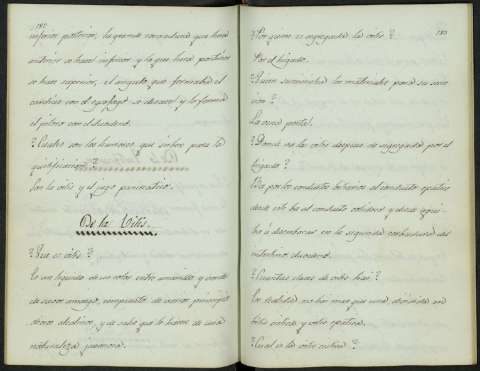 182
inferior posterior, la grande corvadura que hera
anterior se hace inferior y la que hera posterior
se hace superior, el angulo que formaba el
cardias con el esofago se desace y lo forma
el piloro con el duodeno.
? Cuales son los humores que sirben para la
quilificacion ?
Son la vilis y el jugo pancreatico.
De la Vilis.
? Que es vilis ?
Es un liquido de un color entre amarillo y verde
de savor amargo, compuesto de varios principios
alcalinos, y de sales que lo hacen de una
naturaleza jabonosa.
183
? Por quien es segregada la vilis ?
Por el higado.
? Quien suministra los materiales para su secre
cion ?
La vena portal.
? Donde va la vilis despues de segregada por el
higado ?
Ba por los conductos biliarios al conducto epatico
desde este ba al conducto coledoco y desde aqui
ba a desembocar en la segunda corbadura del
intestino duodeno.
? Cuantas clases de vilis hai ?
En realidad no hai mas que una, dividida en
bilis cistica y vilis epatica.
? Cual es la vilis cistica ?